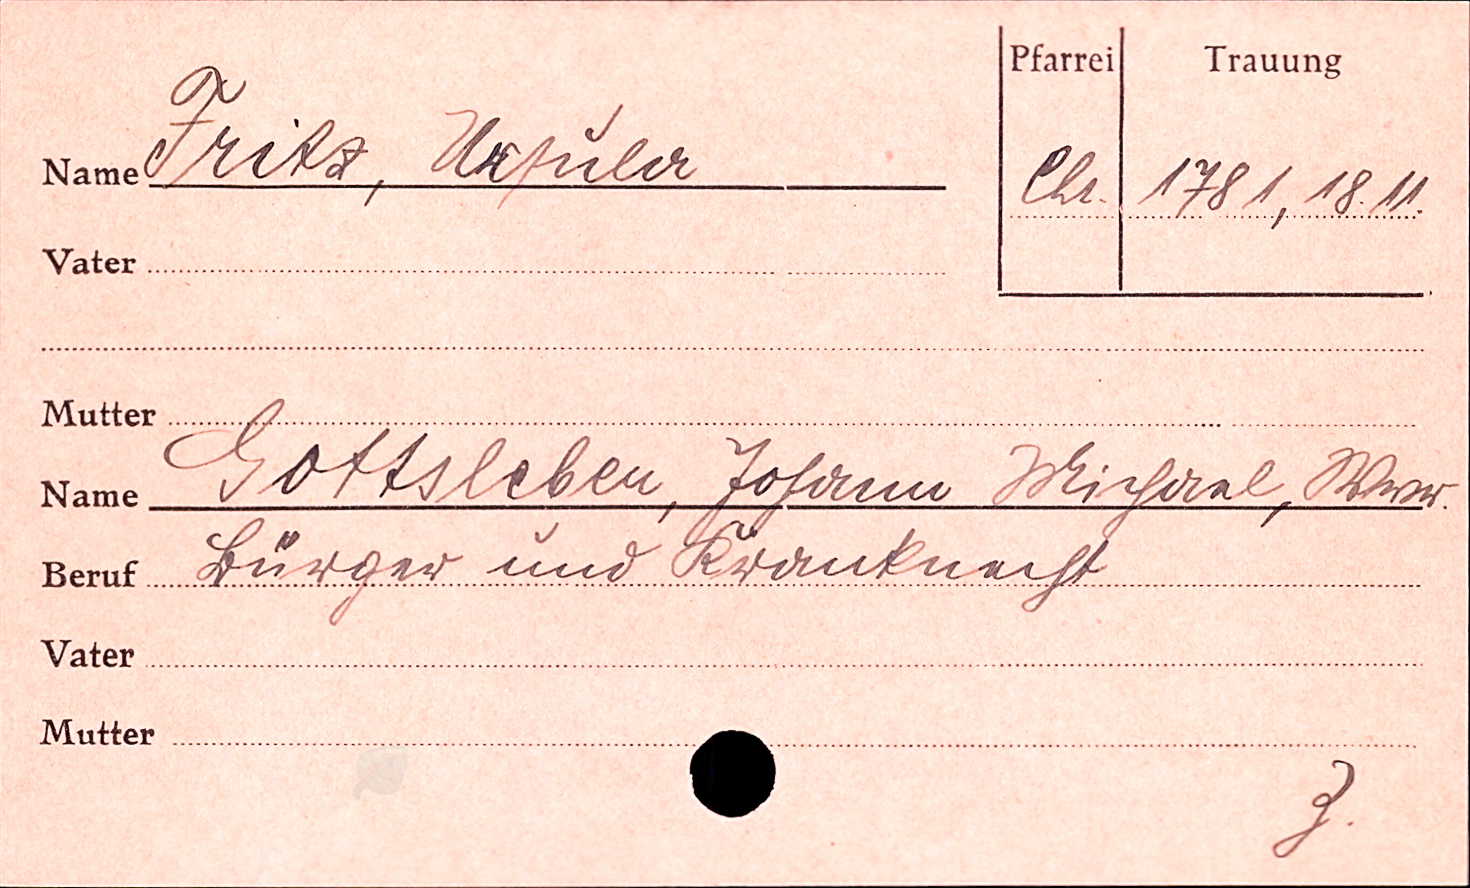 Pfarrei Trauung
Name Fritz, Ursula
Chr. 1781, 18.11.
Vater
Mutter
Name Gottsleben, Johann Michael, Wwr.
Beruf Bürger und Kranknecht
Vater
Mutter
Z.